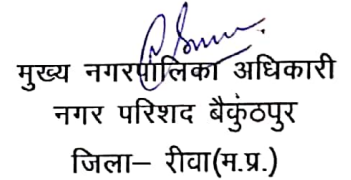 मुख्य नगरपालिका अधिकारी
नगर परिशद बैकुंठपुर
जिला– रीवा(म.प्र.)